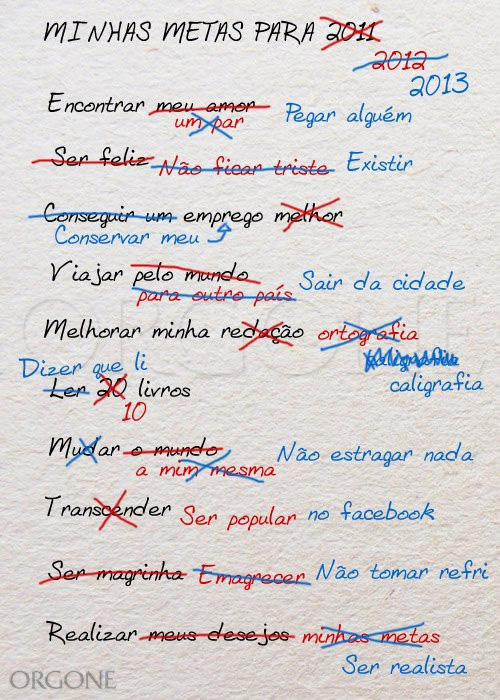 MINHAS METAS PARA 2011
2012
2013
Encontrar meu amor
um par
Pegar alguém
Ser feliz Não ficar triste Existir
Conseguir um emprego melhor
Conservar meu
Viajar pelo mundo
para outro país
Sair da cidade
Melhorar minha redação ortografia
caligrafia
Dizer que li
Ler 20 livros
10
Mudar o mundo
a mim mesma
Não estragar nada
Transcender Ser popular no facebook
Ser magrinha Emagrecer Não tomar refri
Realizar meus desejos minhas metas
Ser realista
ORGONE